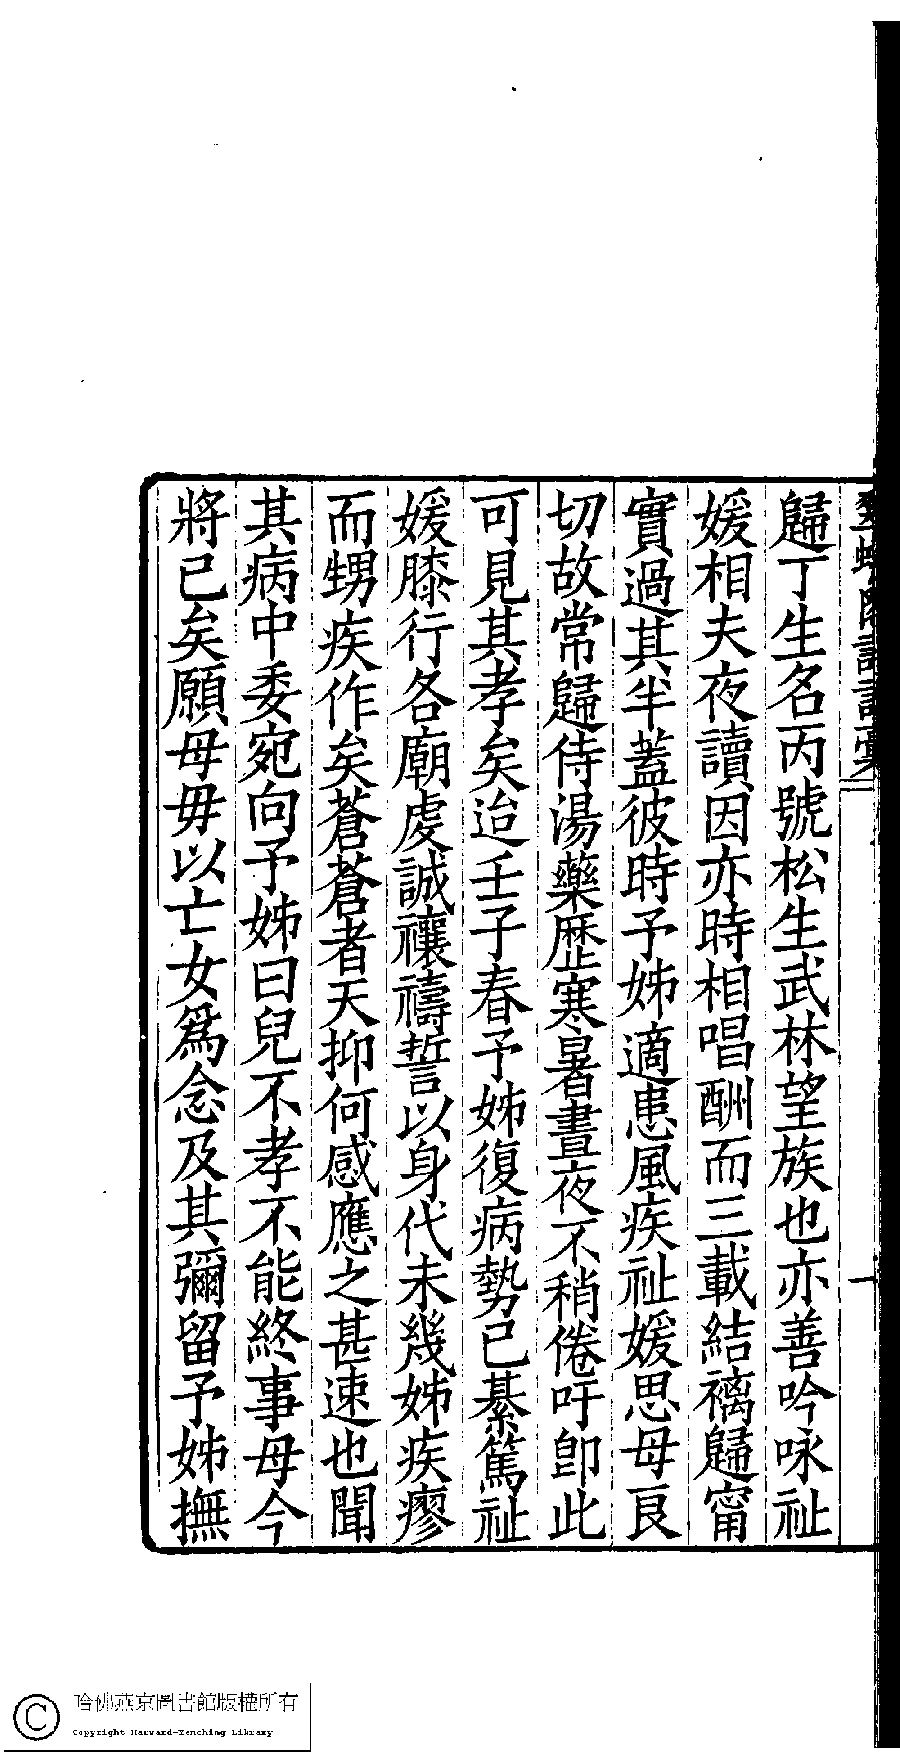 歸丁生名丙號松生武林望族也亦善吟咏祉
媛相夫夜讀因亦時相唱酬而三載結褵歸甯
實過其半蓋彼時予姊適患風疾祉媛思母良
切故常歸侍湯藥歴寒暑晝夜不稍倦吁卽此
可見其孝矣迨壬子春予姊復病勢已綦篤祉
媛膝行各廟虔誠禳禱誓以身代未幾姊疾瘳
而甥疾作矣蒼蒼者天抑何感應之甚速也聞
其病中委宛向予姊曰兒不孝不能終事母今
將已矣願母毋以亡女爲念及其彌留予姊撫
哈佛燕京圖書館版權所有
Copyright Harvard-Yenching Library